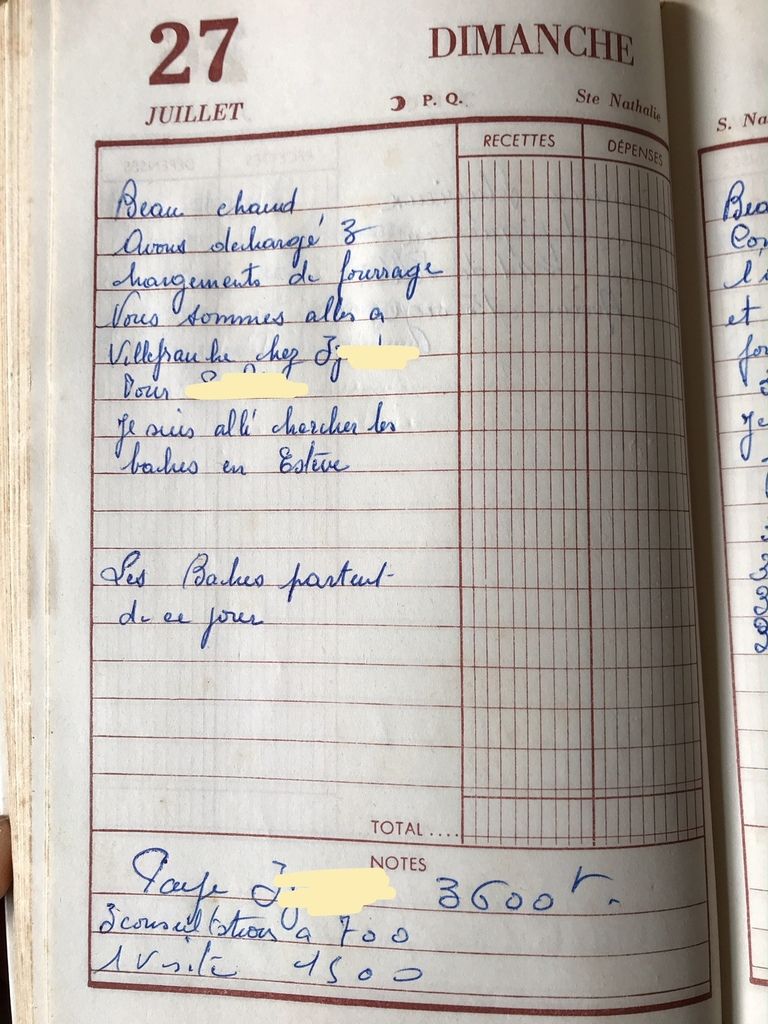 27
DIMANCHE
JUILLET
P. Q.
Ste Nathalie
S. Na
RECETTES
DÉPENSES
Beau chaud
Avons dechargé 3
chargements de fourrage
Nous sommes alles a
Villefranche chez
Pour
Je suis allé chercher les
baches en Estève
Les Baches partent
de ce jour
TOTAL ....
NOTES
Paye 3600 F.
3 consultations a 700
1 Visite 1500
Bea
Con
l'
et
for
Je